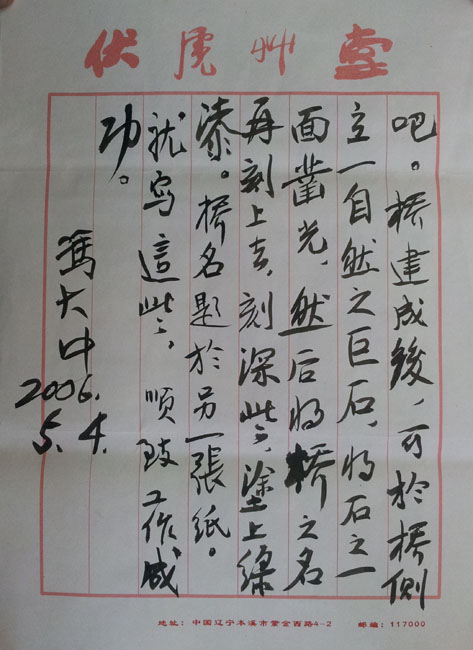 伏虎艸堂
吧。橋建成後，可於橋側
立一自然之巨石，将石之一
面凿光，然后将橋之名
再刻上去，刻深些，塗上绿
漆。橋名題於另一張纸。
就写這些，顺致工作成
功。
冯大中
2006.
5.4.
地址：中国辽宁本溪市紫金西路4-2 邮编：117000